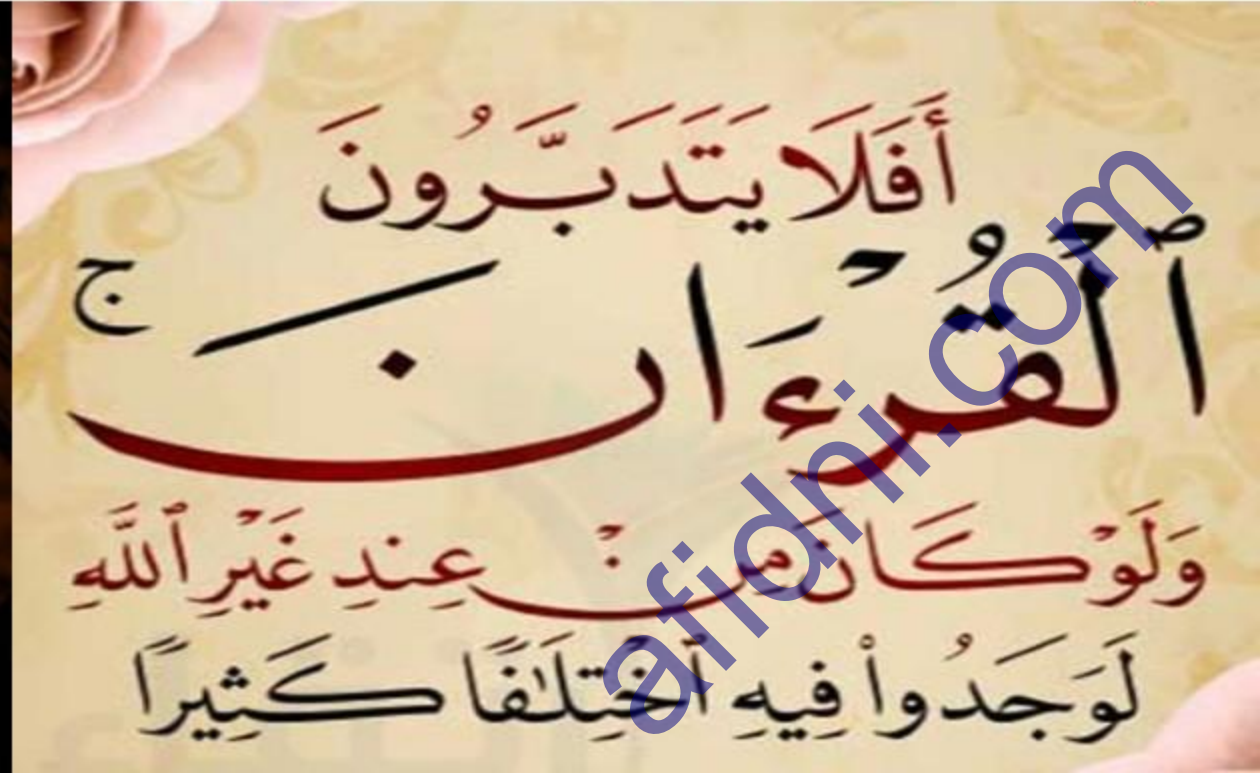 أَفَلَا يَتَدَبَّرُونَ
ٱلْقُرْءَانَ ۚ
وَلَوْ كَانَ مِنْ عِندِ غَيْرِ ٱللَّهِ
لَوَجَدُوا۟ فِيهِ ٱخْتِلَـٰفًا كَثِيرًا
afidni.com